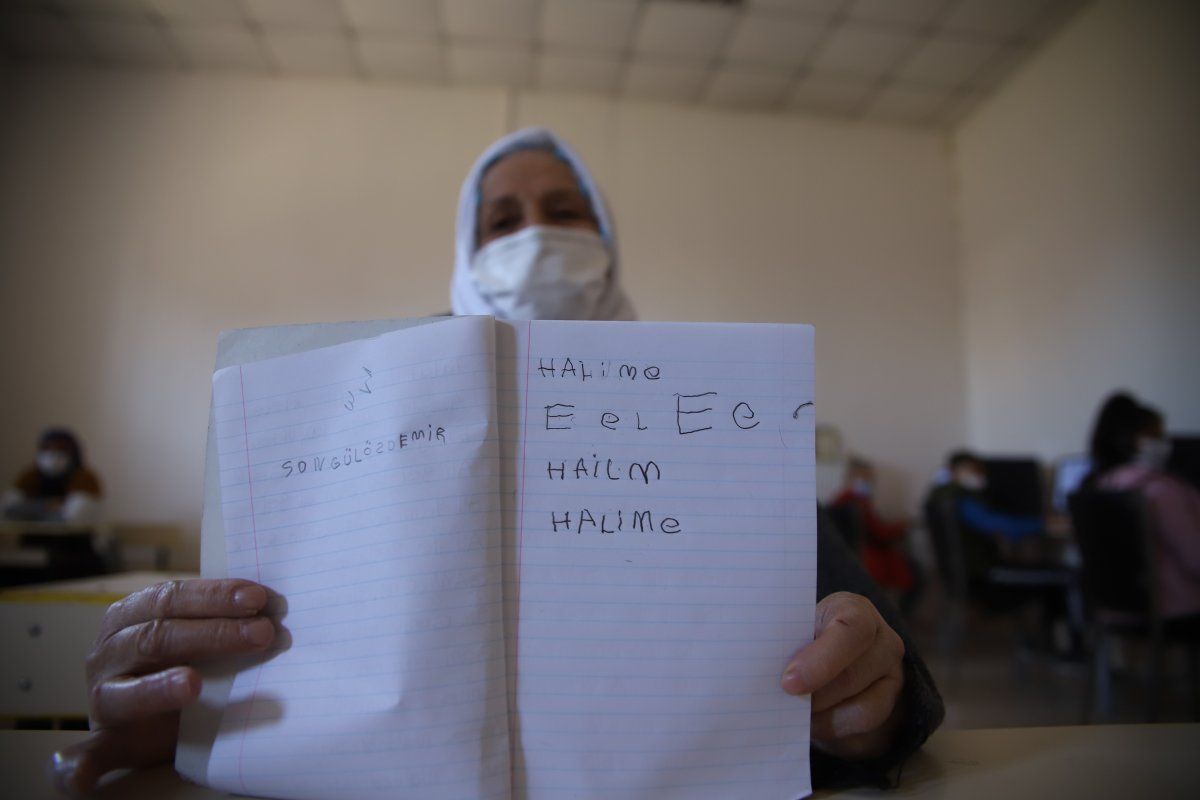 SONGÜLÖZDEMİR
HALime
E eL E e
HAİLM
HALİMe